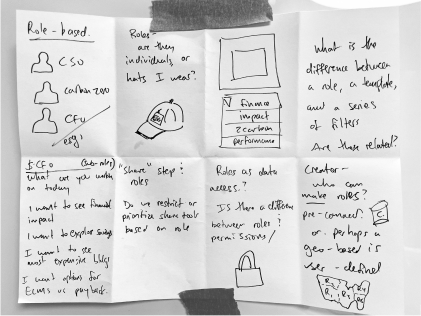 Role-based.
CSO
carbon zero
CFO
esg!
Roles-
are they
individuals or
hats I wear?
finance
impact
zcarbon
performance
What is the
difference between
a role, a template,
and a series
of filters
Are those related?
CFO (sub-roles)
What are you working
on today
I want to see financial
impact
I want to explore savings
I want to see
most expensive bldgs
I want options for
ECMs vs payback.
"Share" step?
roles
Do we restrict or
prioritize share tools
based on role
Roles as data
access?
Is there a difference
between roles?
permissions/
Creator-
who can
make roles?
pre-connect.
or perhaps a
geo-based is
user-defined